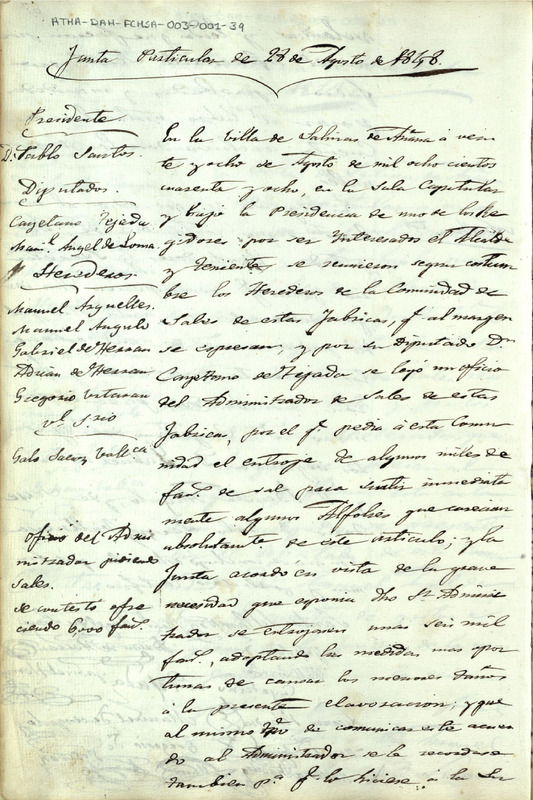 ATHA-DAH-FCHSA-003-001-39
Junta Particular de 28 de Agosto de 1848.
Presidente
D. Pablo Santos.
Diputados.
Cayetano Tejada
Man.l Angel de Loma
Herederos.
Manuel Arguelles.
Manuel Angulo
Gabriel de Herran
Adrian de Herran
Gregorio
V.l S.rio
Galo Saenz
En la Villa de Salinas de Añana á vein
te y ocho de Agosto de mil ocho cientos
cuarenta y ocho, en la Sala Capitular
y bajo la Presidencia de uno de los Re
gidores por ser Interesados el Alcalde
y Tenientes se reunieron segun costum
bre los Herederos de la Comunidad de
Sales de estas Fabricas, q.e al margen
se espresan, y por su Diputado D.n
Cayetano de Tejada se leyó un oficio
del Administrador de Sales de estas
Fabricas, por el q.e pedia á esta Comu
nidad el entroje de algunos miles de
fan.s de sal para surtir inmediata
mente algunos Alfolies que carecian
absolutam.te de este articulo; y la
Junta acordó en vista de la grave
necesidad que esponia dho Sr Adminis
trador se entrojasen unas seis mil
fan.s, adoptando las medidas mas opor
tunas de causar los menores daños
á la presente elavoracion; y que
al mismo tpo de comunicar este acuer
do al Administrador se le recordase
tambien p.a q.e lo hiciese á la Su
oficio del Admi
nistrador pidiendo
sales.
se contestó ofre
ciendo 6000 fan.s